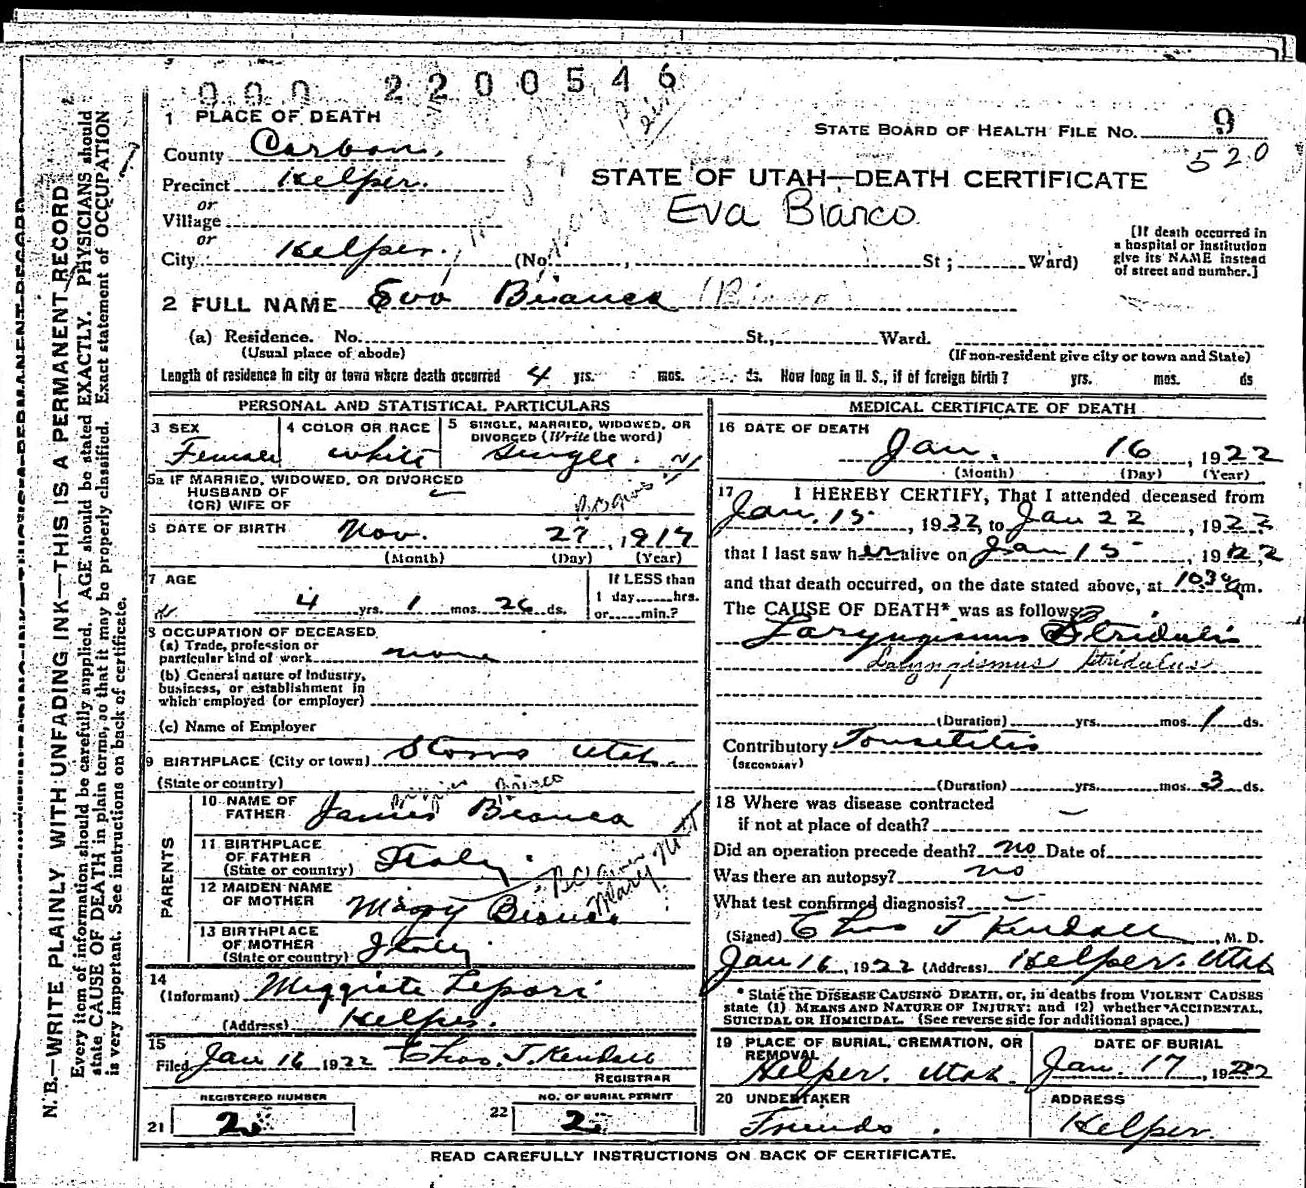 000 2200546
1 PLACE OF DEATH
STATE BOARD OF HEALTH FILE NO. 9
520
County Carbon.
Precinct Helper.
STATE OF UTAH—DEATH CERTIFICATE
Eva Bianco
or
Village
or
City Helper. (No. , St; Ward)
[If death occurred in a hospital or institution give its NAME instead of street and number.]
2 FULL NAME Eva Bianca
(a) Residence. No. St., Ward.
(Usual place of abode) (If non-resident give city or town and State)
Length of residence in city or town where death occurred 4 yrs. mos. ds. How long in U. S., if of foreign birth? yrs. mos. ds
PERSONAL AND STATISTICAL PARTICULARS
3 SEX Female
4 COLOR OR RACE white
5 SINGLE, MARRIED, WIDOWED, OR DIVORCED (Write the word) Single.
5a IF MARRIED, WIDOWED, OR DIVORCED
HUSBAND OF
(OR) WIFE OF
6 DATE OF BIRTH Nov. 27, 1917
(Month) (Day) (Year)
7 AGE
4 yrs. 1 mos. 26 ds.
If LESS than
1 day hrs.
or min.?
8 OCCUPATION OF DECEASED
(a) Trade, profession or
particular kind of work none
(b) General nature of Industry,
business, or establishment in
which employed (or employer)
(c) Name of Employer
9 BIRTHPLACE (City or town) Storrs Utah.
(State or country)
PARENTS
10 NAME OF FATHER James Bianca
Bianco
11 BIRTHPLACE OF FATHER (State or country) Italy.
12 MAIDEN NAME OF MOTHER Mary Bianco.
BC gives
Mary Nott
13 BIRTHPLACE OF MOTHER (State or country) Italy.
14 (Informant) Miggiate Lepori
(Address) Helper.
15 Filed Jan 16, 1922 Thos. J. Kendall
REGISTRAR
REGISTERED NUMBER
21 2
NO. OF BURIAL PERMIT
22 2
MEDICAL CERTIFICATE OF DEATH
16 DATE OF DEATH
Jan. 16, 1922
(Month) (Day) (Year)
17 I HEREBY CERTIFY, That I attended deceased from
Jan. 15, 1922, to Jan 22, 1922
that I last saw her alive on Jan 15, 1922
and that death occurred, on the date stated above, at 1030 am.
The CAUSE OF DEATH* was as follows:
Laryngismus Stridulis
Laryngismus Stridulus
(Duration) yrs. mos. 1 ds.
Contributory Tonsilitis
(SECONDARY)
(Duration) yrs. mos. 3 ds.
18 Where was disease contracted
if not at place of death? —
Did an operation precede death? no Date of
Was there an autopsy? no
What test confirmed diagnosis? —
(Signed) Thos J Kendall, M. D.
Jan 16, 1922 (Address) Helper. Utah
* State the DISEASE CAUSING DEATH, or, in deaths from VIOLENT CAUSES
state (1) MEANS AND NATURE OF INJURY; and (2) whether ACCIDENTAL,
SUICIDAL OR HOMICIDAL. (See reverse side for additional space.)
19 PLACE OF BURIAL, CREMATION, OR REMOVAL
Helper. Utah.
DATE OF BURIAL
Jan. 17, 1922
20 UNDERTAKER
Friends.
ADDRESS
Helper.
READ CAREFULLY INSTRUCTIONS ON BACK OF CERTIFICATE.
N. B.—WRITE PLAINLY, WITH UNFADING INK—THIS IS A PERMANENT RECORD
Every item of information should be carefully supplied. AGE should be stated EXACTLY. PHYSICIANS should
state CAUSE OF DEATH in plain terms, so that it may be properly classified. Exact statement of OCCUPATION
is very important. See instructions on back of certificate.